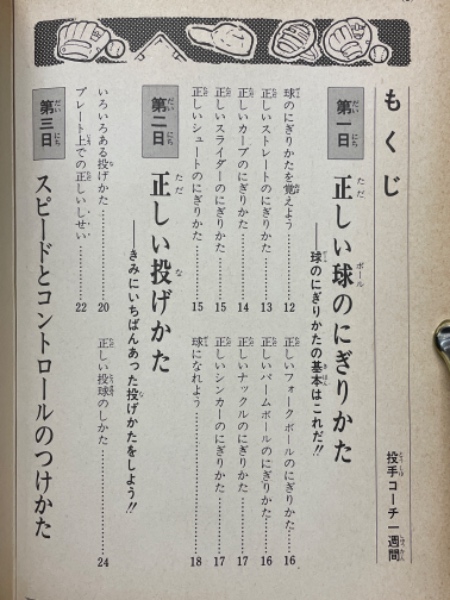 もくじ
投手コーチ一週間
第一日 正しい球のにぎりかた
――球のにぎりかたの基本はこれだ!!
球のにぎりかたを覚えよう…………12
正しいストレートのにぎりかた…………13
正しいカーブのにぎりかた…………14
正しいスライダーのにぎりかた…………15
正しいシュートのにぎりかた…………15
正しいフォークボールのにぎりかた…………16
正しいパームボールのにぎりかた…………16
正しいナックルのにぎりかた…………17
正しいシンカーのにぎりかた…………17
球になれよう…………18
第二日 正しい投げかた
――きみにいちばんあった投げかたをしよう!!
いろいろある投げかた…………20
プレート上での正しいしせい…………22
正しい投球のしかた…………24
第三日 スピードとコントロールのつけかた